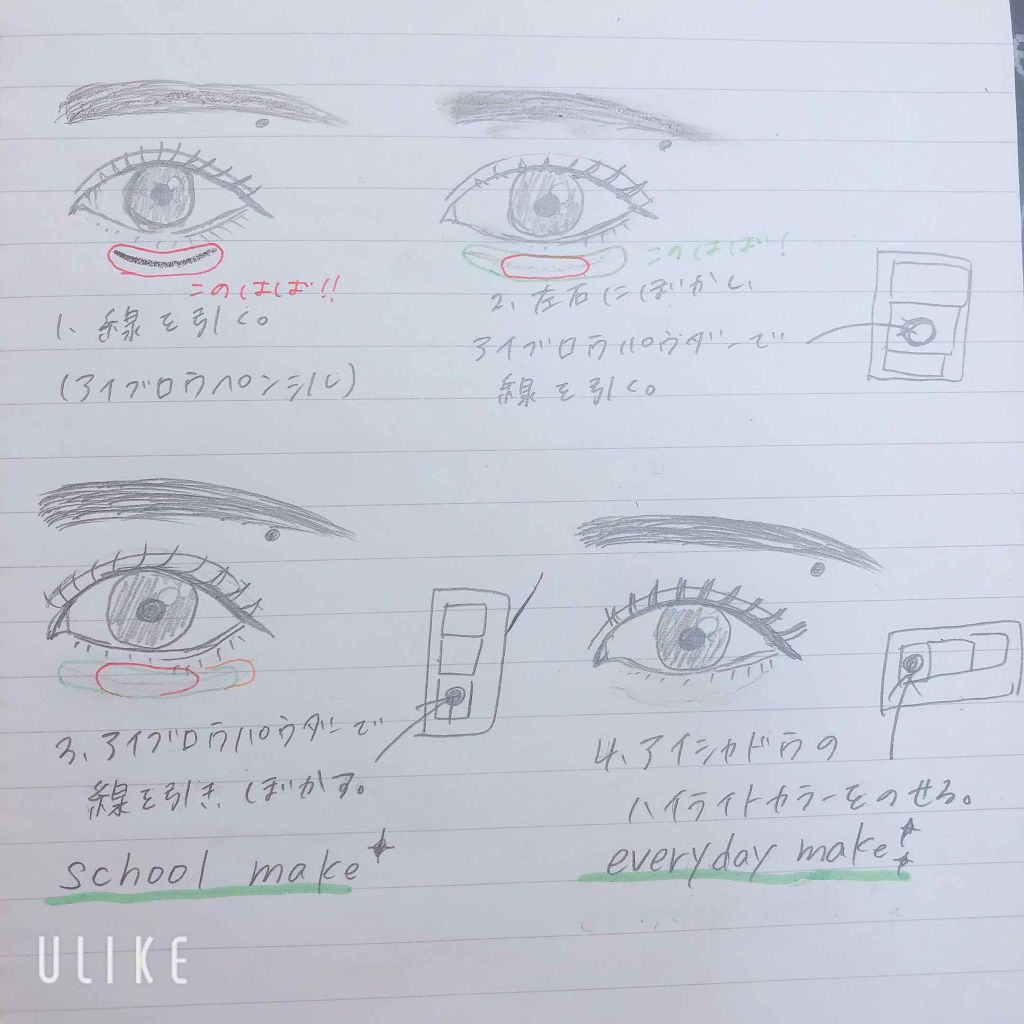 このはば!!
1、線を引く。
(アイブロウペンシル)
このはば!
2、左右にぼかし、
アイブロウパウダーで
線を引く。
3、アイブロウパウダーで
線を引き、ぼかす。
school make
4、アイシャドウの
ハイライトカラーをのせる。
everyday make
ULIKE